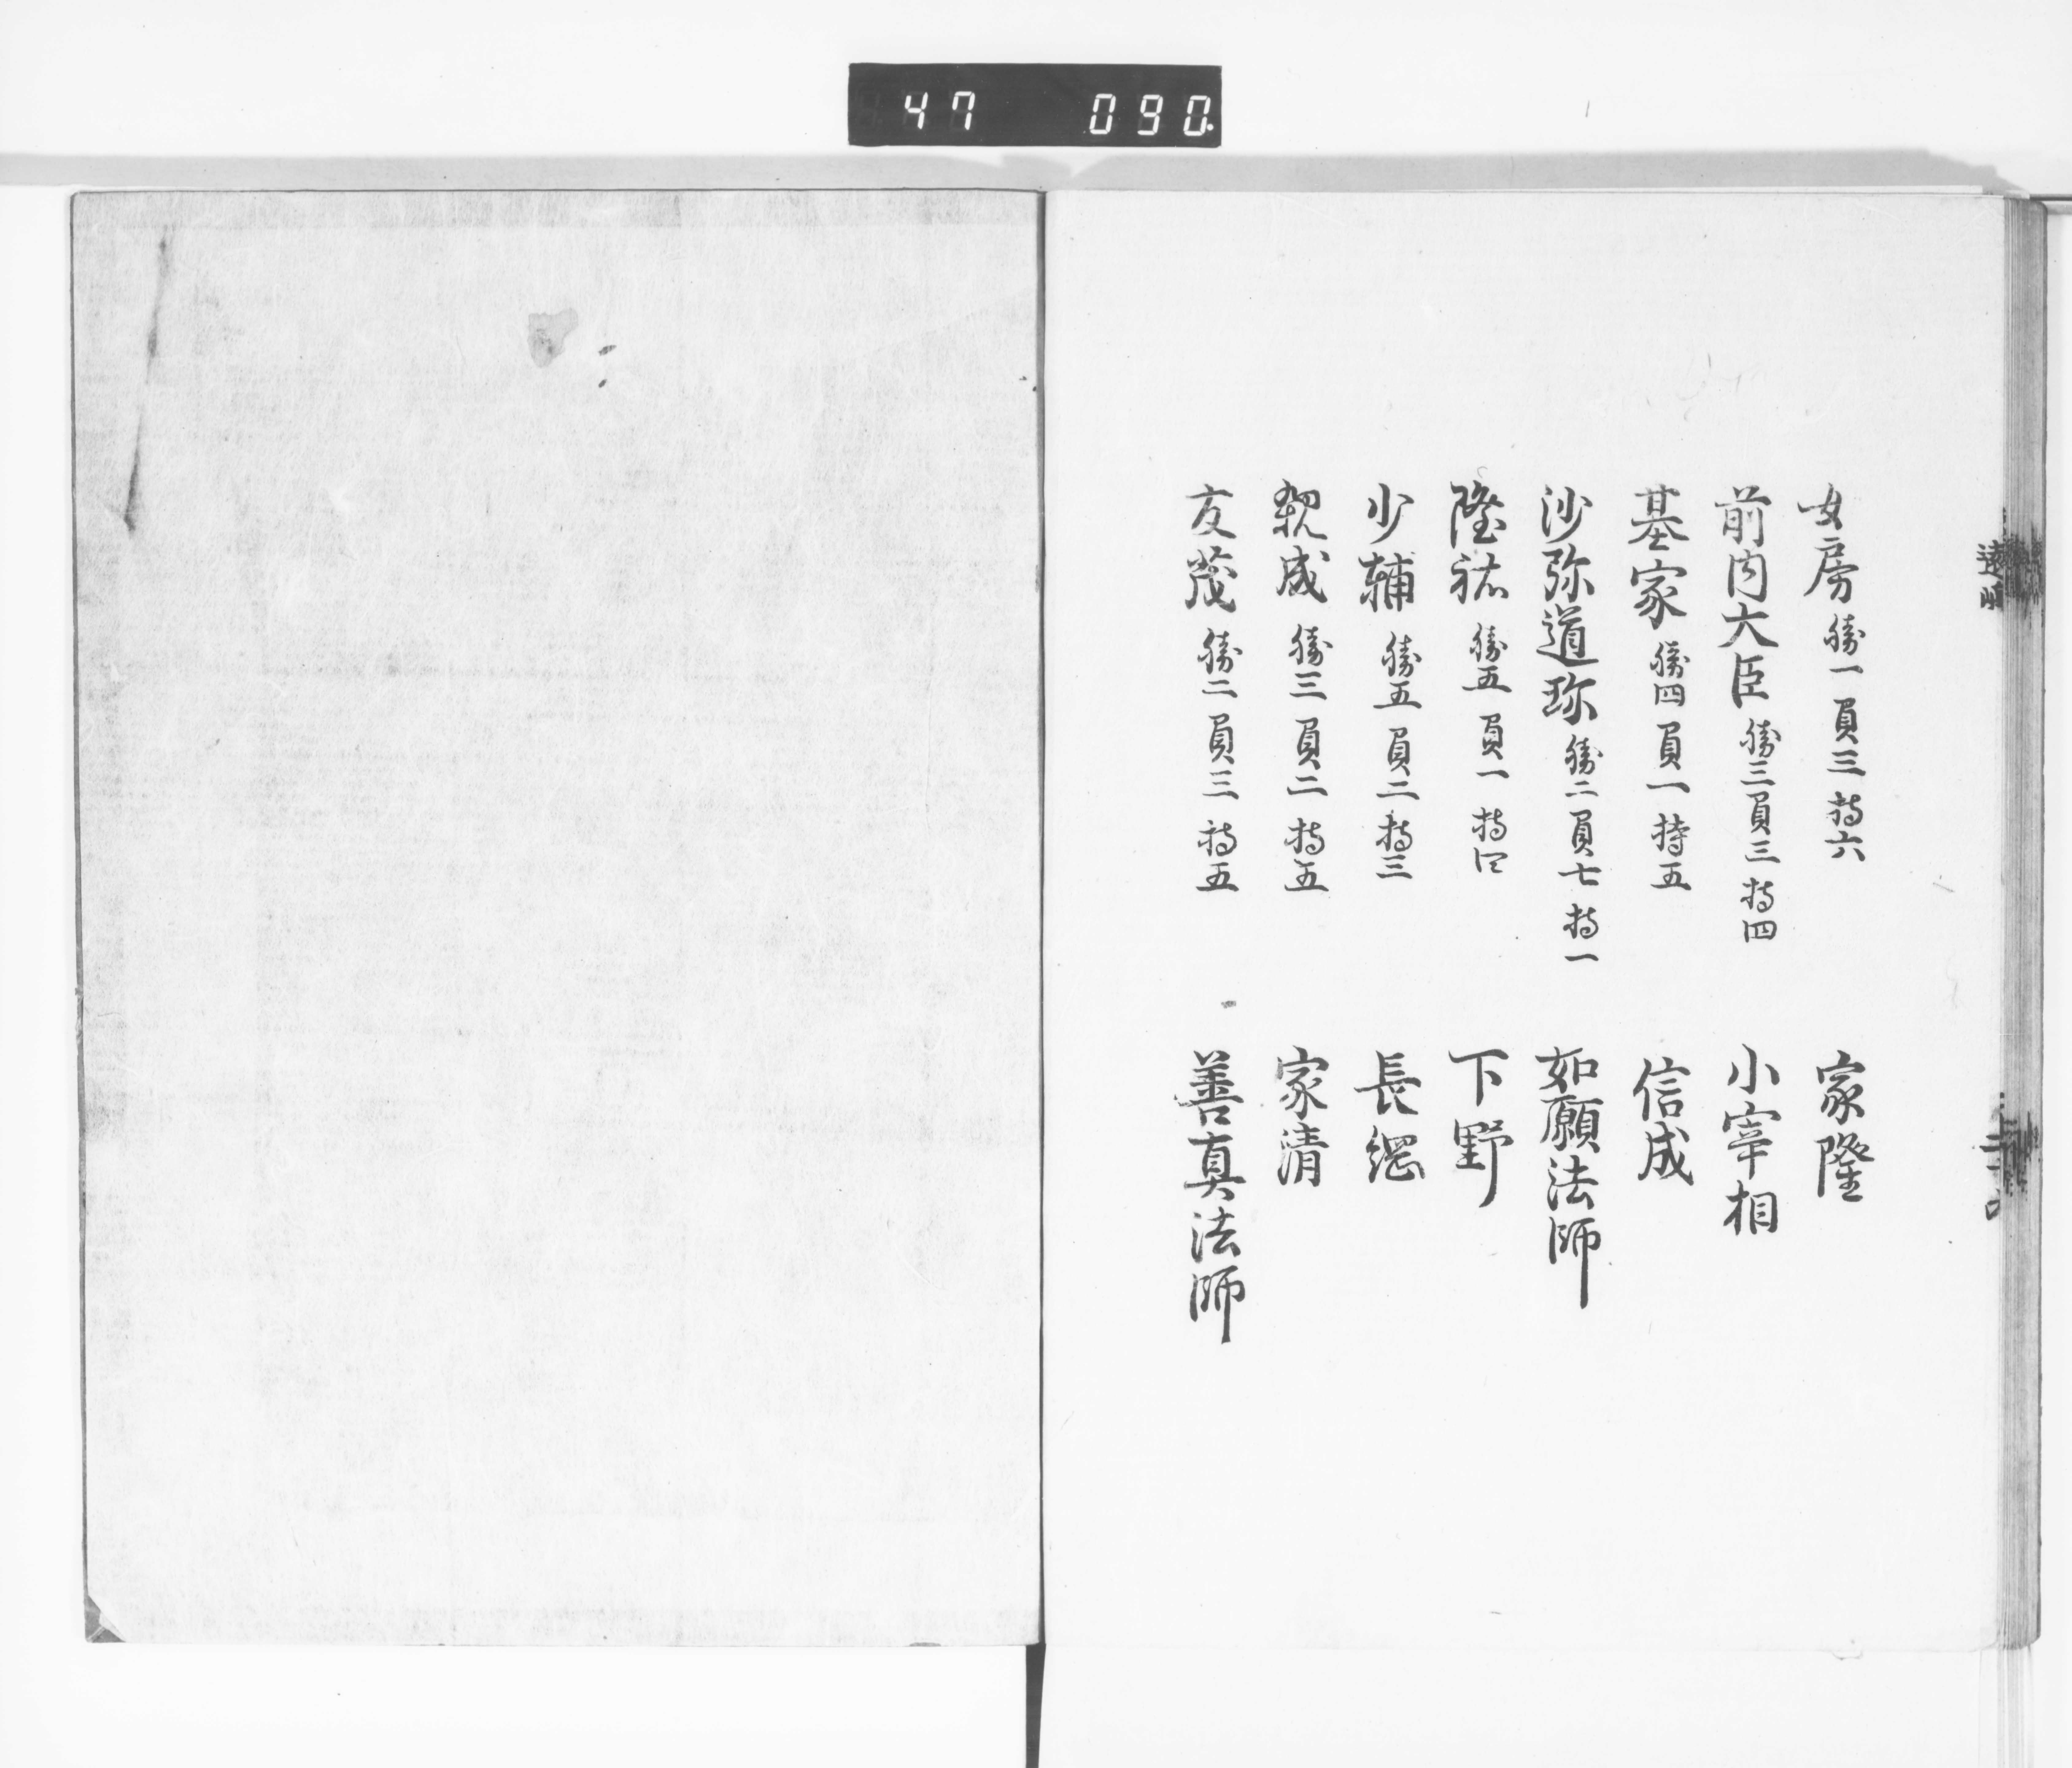 47 090
女房 勝一 負三 持六 家隆
前内大臣 勝三 負三 持四 小宰相
基家 勝四 負一 持五 信成
沙弥道珍 勝二 負七 持一 如願法師
隆祐 勝五 負一 持四 下野
少輔 勝五 負二 持三 長綱
親成 勝三 負二 持五 家清
友茂 勝二 負三 持五 善真法師